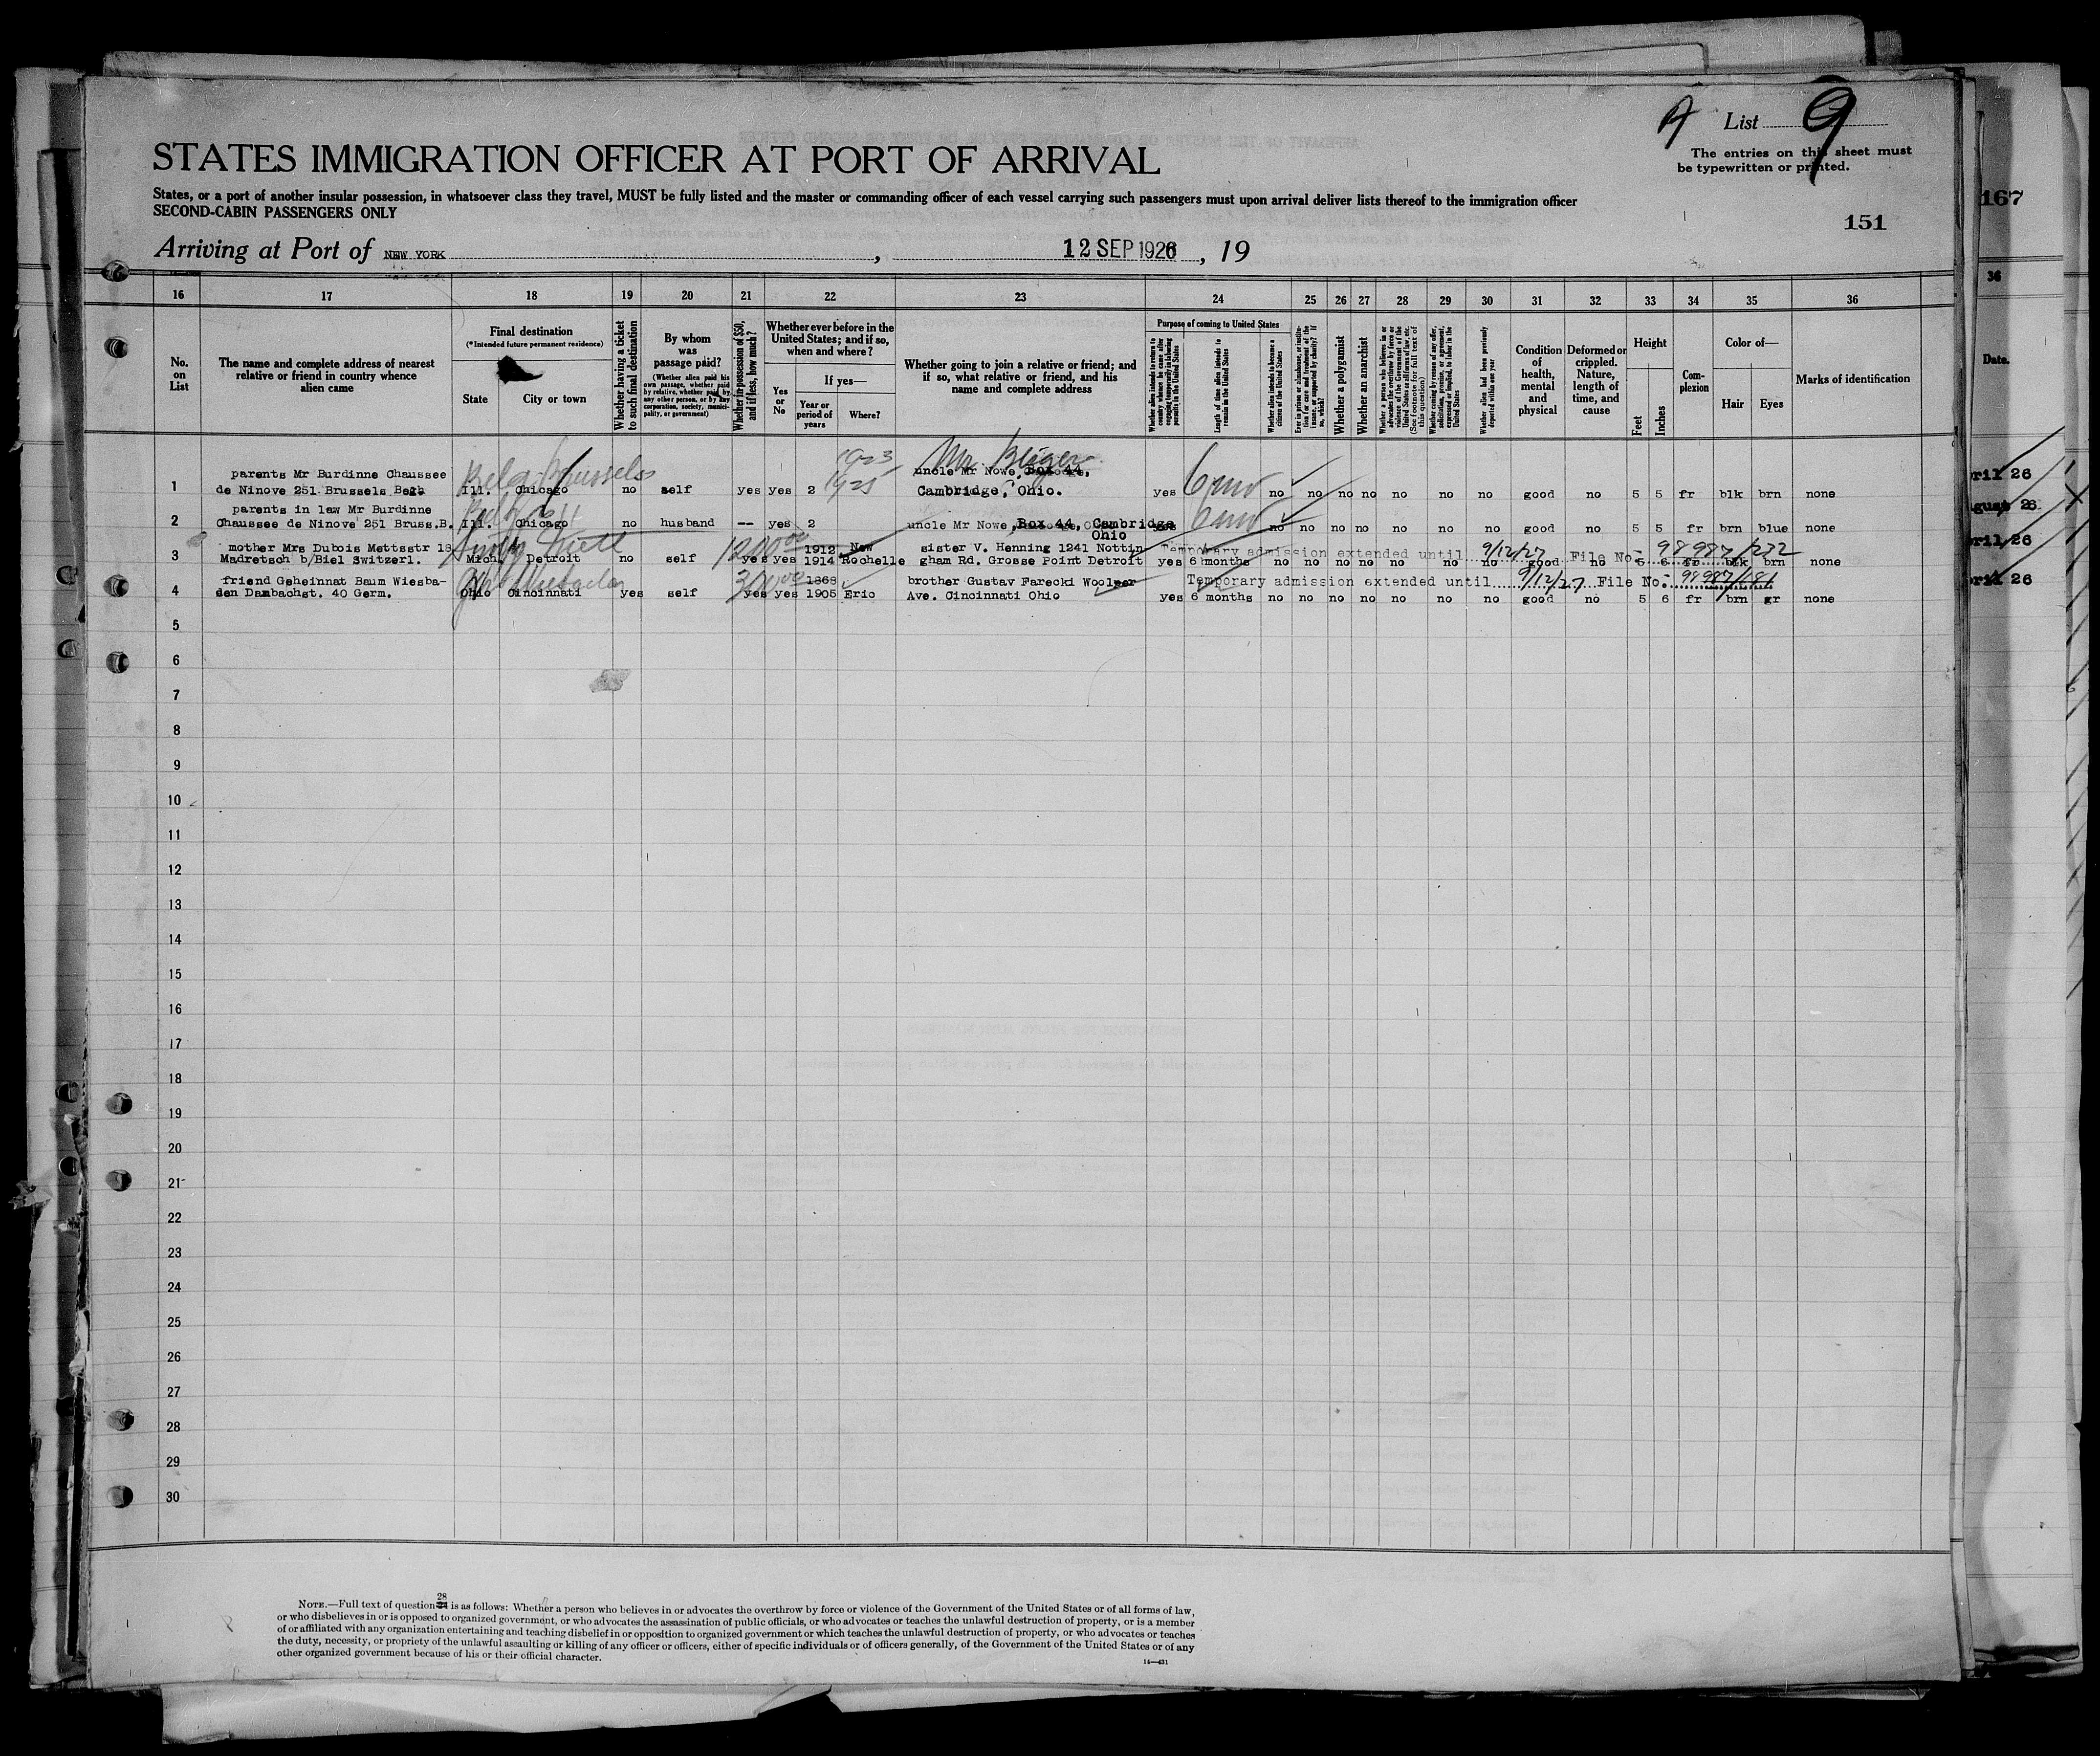 A List 9
The entries on this sheet must
be typewritten or printed.
STATES IMMIGRATION OFFICER AT PORT OF ARRIVAL
States, or a port of another insular possession, in whatsoever class they travel, MUST be fully listed and the master or commanding officer of each vessel carrying such passengers must upon arrival deliver lists thereof to the immigration officer
SECOND-CABIN PASSENGERS ONLY
151
167
Arriving at Port of NEW YORK, 12 SEP 1926, 19
16 17 18 19 20 21 22 23 24 25 26 27 28 29 30 31 32 33 34 35 36
36
No. on List
The name and complete address of nearest relative or friend in country whence alien came
Final destination
(*Intended future permanent residence)
State
City or town
Whether having a ticket to such final destination
By whom was passage paid?
(Whether alien paid his own passage, whether paid by relative, whether paid by any other person, or by any corporation, society, municipality, or government)
Whether in possession of $50, and if less, how much?
Whether ever before in the United States; and if so, when and where?
Yes or No
If yes—
Year or period of years
Where?
Whether going to join a relative or friend; and if so, what relative or friend, and his name and complete address
Purpose of coming to United States
Whether alien intends to return to country whence he came after engaging temporarily in laboring pursuits in the United States
Length of time alien intends to remain in the United States
Whether alien intends to become a citizen of the United States
Ever in prison or almshouse, or institution for care and treatment of the insane, or supported by charity? If so, which?
Whether a polygamist
Whether an anarchist
Whether a person who believes in or advocates the overthrow by force or violence of the Government of the United States or all forms of law, etc. (See footnote for full text of this question)
Whether coming by reason of any offer, solicitation, promise, or agreement, expressed or implied, to labor in the United States
Whether alien had been previously deported within one year
Condition of health, mental and physical
Deformed or crippled. Nature, length of time, and cause
Height
Feet
Inches
Complexion
Color of—
Hair
Eyes
Marks of identification
Date.
1923
Mr.
parents Mr Burdinne Chaussee Belg Brussels uncle Mr Nowe, Box 44,
1 de Ninove 251 Brussels Belg. Ill. Chicago no self yes yes 2 1925 Cambridge, Ohio. yes 6 mo no no no no no no no good no 5 5 fr blk brn none
parents in law Mr Burdinne
2 Chaussee de Ninove 251 Bruss.B. Ill. Chicago no husband -- yes 2 uncle Mr Nowe, Box 44 Cambridge yes 6 mo no no no no no no no good no 5 5 fr brn blue none
Ohio
mother Mrs Dubois Mettsstr 18 1200 00 1912 New sister V. Henning 1241 Nottin Temporary admission extended until 9/12/27 File No. 98987/232
3 Madretsch b/Biel Switzerl. Mich. Detroit no self yes yes 1914 Rochelle gham Rd. Grosse Point Detroit yes 6 months no no no no no no no good no 5 6 fr blk brn none
friend Geheinnat Baum Wiesba- 300 00 1868 brother Gustav Farecki Woolper Temporary admission extended until 9/12/27 File No. 98987/181
4 den Dambachst. 40 Germ. Ohio Cincinnati yes self yes yes 1905 Eric Ave. Cincinnati Ohio yes 6 months no no no no no no no good no 5 6 fr brn gr none
pril 26
gust 26
pril 26
pril 26
5
6
7
8
9
10
11
12
13
14
15
16
17
18
19
20
21
22
23
24
25
26
27
28
29
30
28
NOTE.—Full text of question is as follows: Whether a person who believes in or advocates the overthrow by force or violence of the Government of the United States or of all forms of law,
or who disbelieves in or is opposed to organized government, or who advocates the assassination of public officials, or who advocates or teaches the unlawful destruction of property, or is a member
of or affiliated with any organization entertaining and teaching disbelief in or opposition to organized government or which teaches the unlawful destruction of property, or who advocates or teaches
the duty, necessity, or propriety of the unlawful assaulting or killing of any officer or officers, either of specific individuals or of officers generally, of the Government of the United States or of any
other organized government because of his or their official character.
14—431